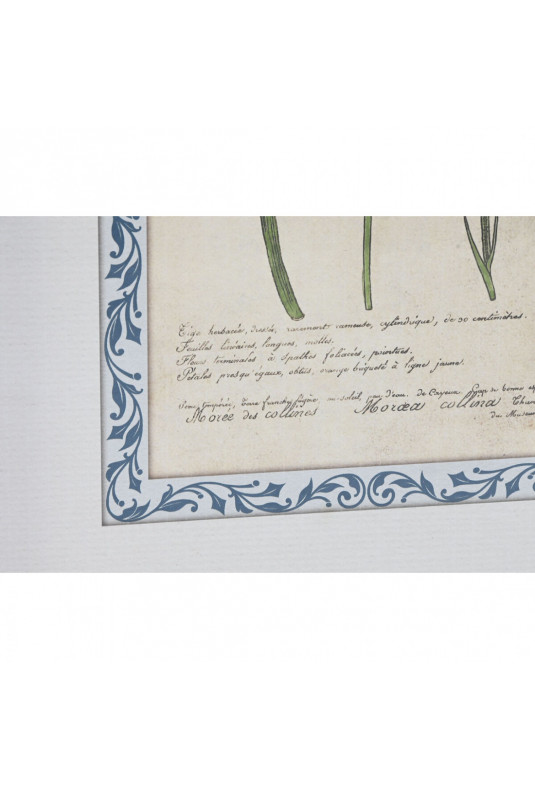 Tige herbacée, dressé, rarement rameuse, cylindrique, de 30 centimètres.
Feuilles linéaires, longues, molles.
Fleurs terminales à spathes foliacés, pointues.
Pétales presqu'égaux, obtus, orange briqueté à lignes jaune.
Serre tempérée, Terre franche légère, mi-soleil, d'eau. de Cayeux
Morée des collines Moræa collina Thun
du Museum